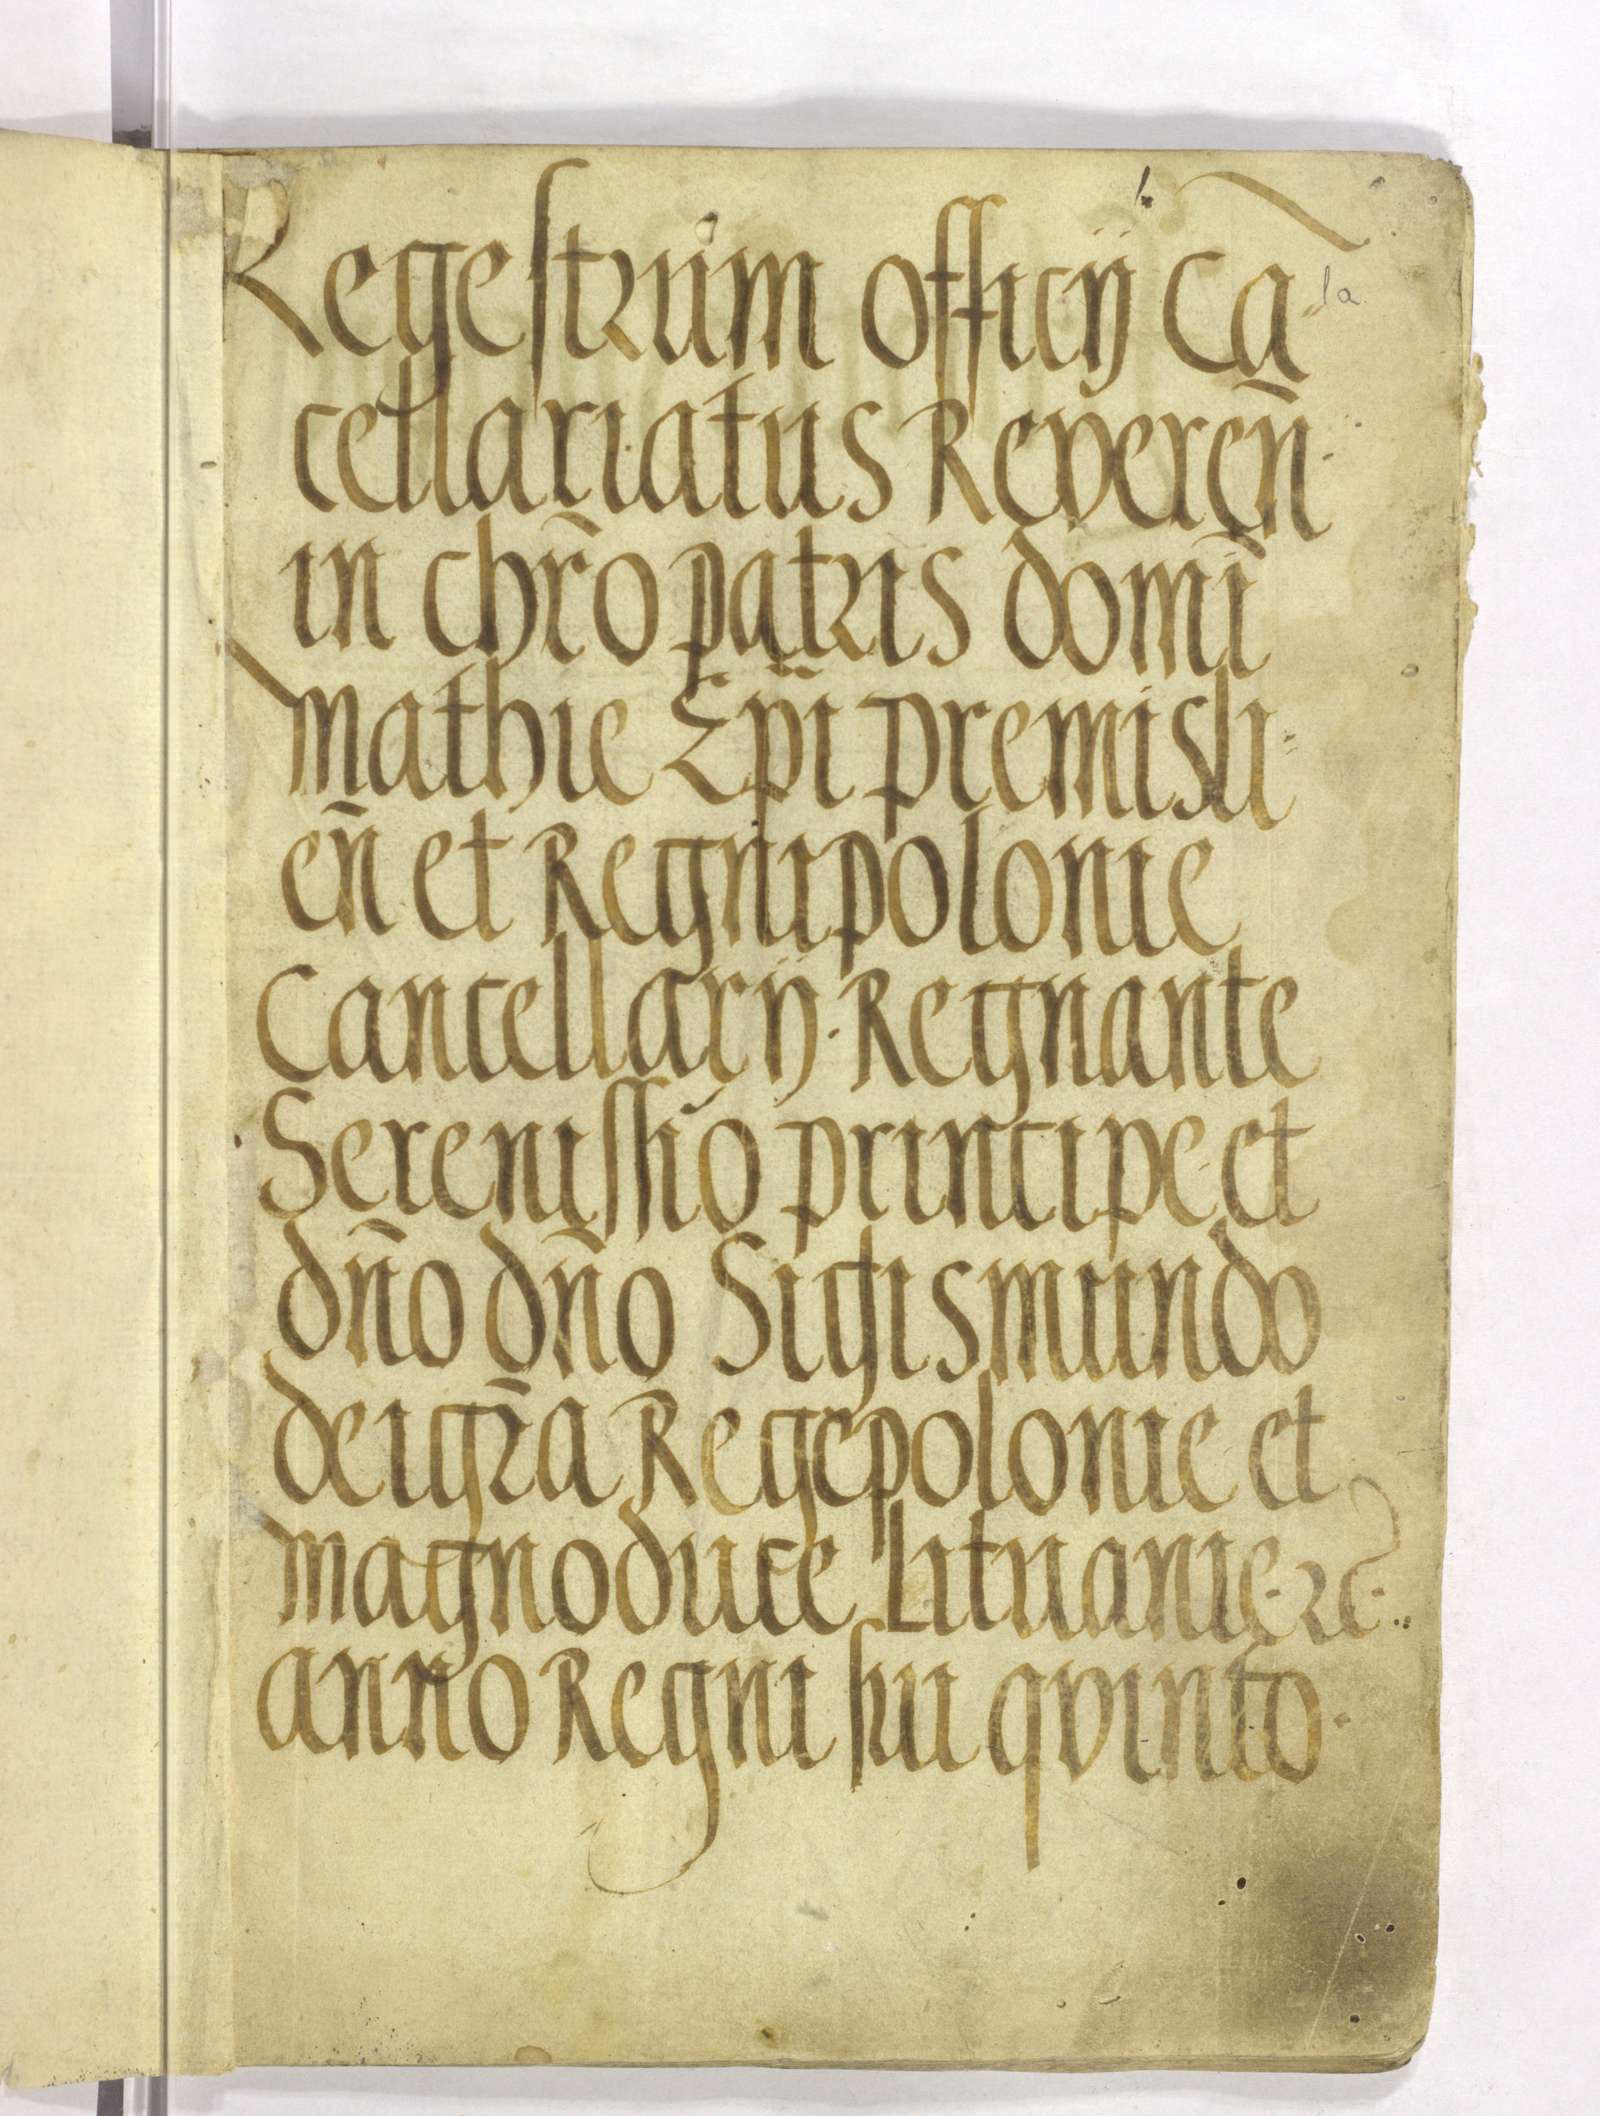 Regestrum officÿ Cā
cellariatus Reveren̄
in chr̄o patris domī
mathie Ep̄i premisli
en̄ et Regni polonie
Cancellarÿ. Regnante
Serenissīo principe et
dn̄o dn̄o Sigismundo
dei gr̄a Rege polonie et
magno duce Lituanie. ⁊c̄.
anno Regni sui qvinto.